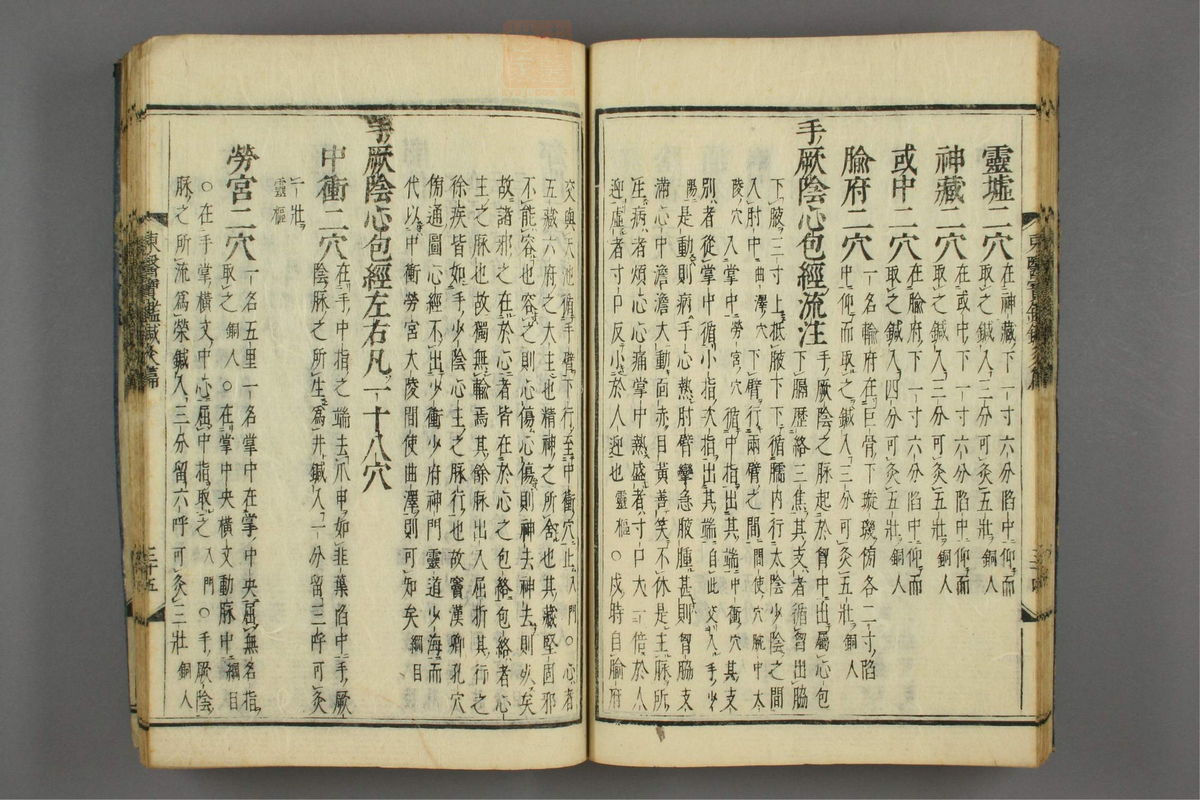 靈墟二穴 在神藏下一寸六分陷中仰而
取之鍼入三分可灸五壯 銅人
神藏二穴 在或中下一寸六分陷中仰而
取之鍼入三分可灸五壯 銅人
或中二穴 在腧府下一寸六分陷中仰而
取之鍼入四分可灸五壯 銅人
腧府二穴 一名輸府在巨骨下璇璣傍各二寸陷
中仰而取之鍼入三分可灸五壯 銅人
手厥陰心包經流注 手厥陰之脉起於胷中出屬心包
下膈歷絡三焦其支者循胷出脇
下腋三寸上抵腋下下循臑內行太陰少陰之間
入肘中 曲澤穴 下臂行兩臂之間 間使穴 腕中大
陵穴 入掌中 勞宮穴 循中指出其端 中衝穴 其支
別者從掌中循小指次指出其端 自此交入手少
陽 是動則病手心熱肘臂攣急腋腫甚則胷脇支
滿心中澹澹大動面赤目黃善笑不休是主脉所
生病者煩心心痛掌中熱盛者寸口大一倍於人
迎虛者寸口反小於人迎也 靈樞 ○戌時自腧府
交與天池循手臂下行至中衝穴止 入門 ○心者
五藏六府之大主也精神之所舍也其藏堅固邪
不能容也容之則心傷心傷則神去神去則死矣
故諸邪之在於心者皆在於心之包絡包絡者心
主之脉也故獨無輸焉其餘脉出入屈折其行之
徐疾皆如手少陰心主之脉行也故竇漢卿孔穴
俯通圖心經不出少衝少府神門靈道少海而
代以中衝勞宮大陵間使曲澤則可知矣 綱目
手厥陰心包經左右凡一十八穴
中衝二穴 在手中指之端去爪甲如韭葉陷中手厥
陰脉之所生爲井鍼入一分留三呼可灸
一壯
靈樞
勞宮二穴 一名五里一名掌中在掌中央屈無名指
取之 銅人 ○在掌中央橫文動脉中 綱目
○在手掌橫文中心屈中指取之 入門 ○手厥陰
脉之所流爲滎鍼入三分留六呼可灸三壯 銅人
東醫寶鑑鍼灸篇
三十四
東醫寶鑑鍼灸篇
三十五